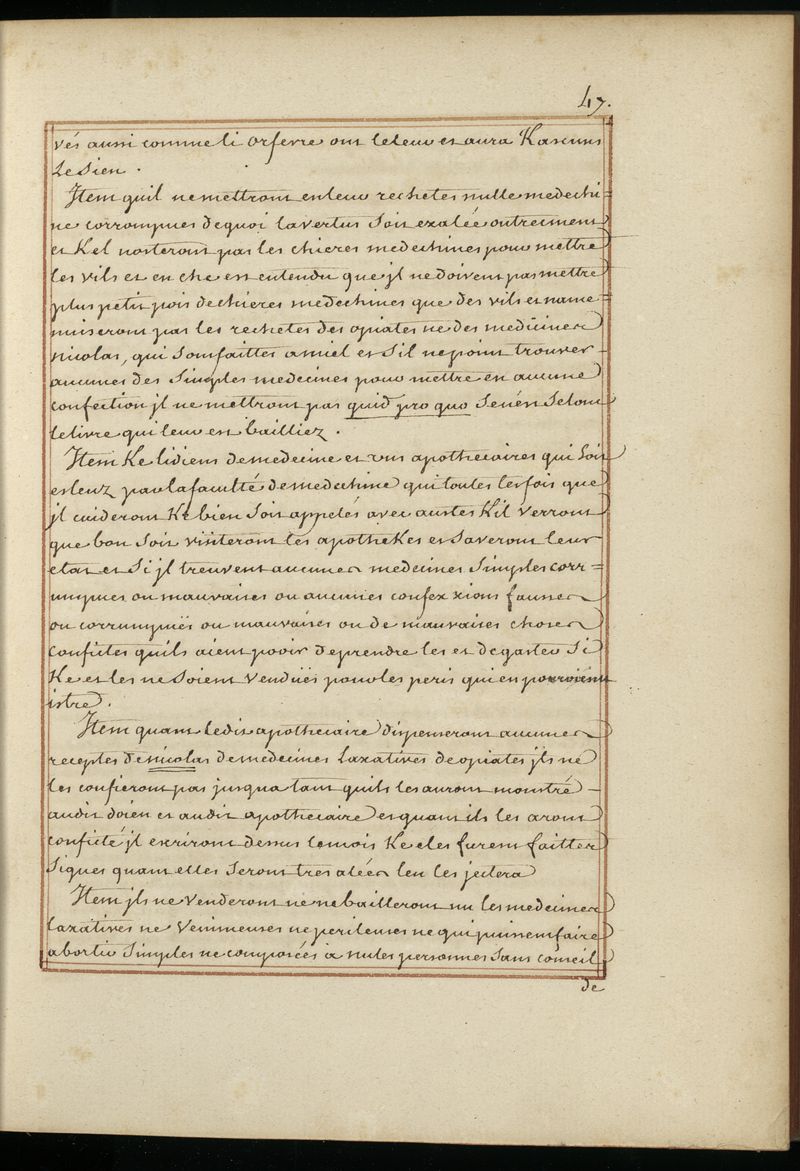 47.
vés aussi comme li orfevre ont leleur et aura Kascuns
Le Sien .
Item quil nemettront enleur rechetes nulle medechi=
ne corrompues dequoi lavertus Soit exalée outreement
et Kel nosteront pas les chieres medechines pour mettre
les vils et en che est entendu que jl nedoivent pasmettre
plus petit pois dechieres medechines que des vils et name
nuiseront pas les rechetes des opiates ne des medicines
nicolas, qui Sontfaittes amiel et Sil nepoint trouver
aucunes des Simples medecines pour mettre en aucune
confection jl nemettront pas quid pro quo Senén Selonc
lelivre qui leur est bailliez .
Item Ke lidiens demedecine et uns apothecaires qui Soit
esleuz parlafaculté demedechine qui toutes lesfois que
jl cuideront Ke bien Soit appelés avec austes Kil verront
que bon Soit visiteront les apotheKes et Saveront leur
etat et Si jl treuvent aucunes medecines Simples corr=
umpues ou mauvaises ou aucunes confexxions fausses
ou corrumpuës ou mauvaises ou de mauvaises choses
confites quils aient pooir deprendre les et degaster Si
Ke et les ne Soient Venduës pourles peris qui en porroient
istre .
Item quant ledit apothicaire dispenseront aucunes
receptes denicolas demedecines Laxatives deopiates jls ne
les confieront pas jusqua tant quils lesauront monstré -
audit doien et audit apothicaire et quant ils les aront
confité jl escriront dessus lemois Ke eles furent faittes
Siques quant elles Seront tres alées len les jettera
Item jls ne Venderont ne nebailleront nu les medecines
laxatives ne Venimeuses ne perileuses ne qui puissent faire
abortir Simples ne composées à nules personnes Sans conseil
de